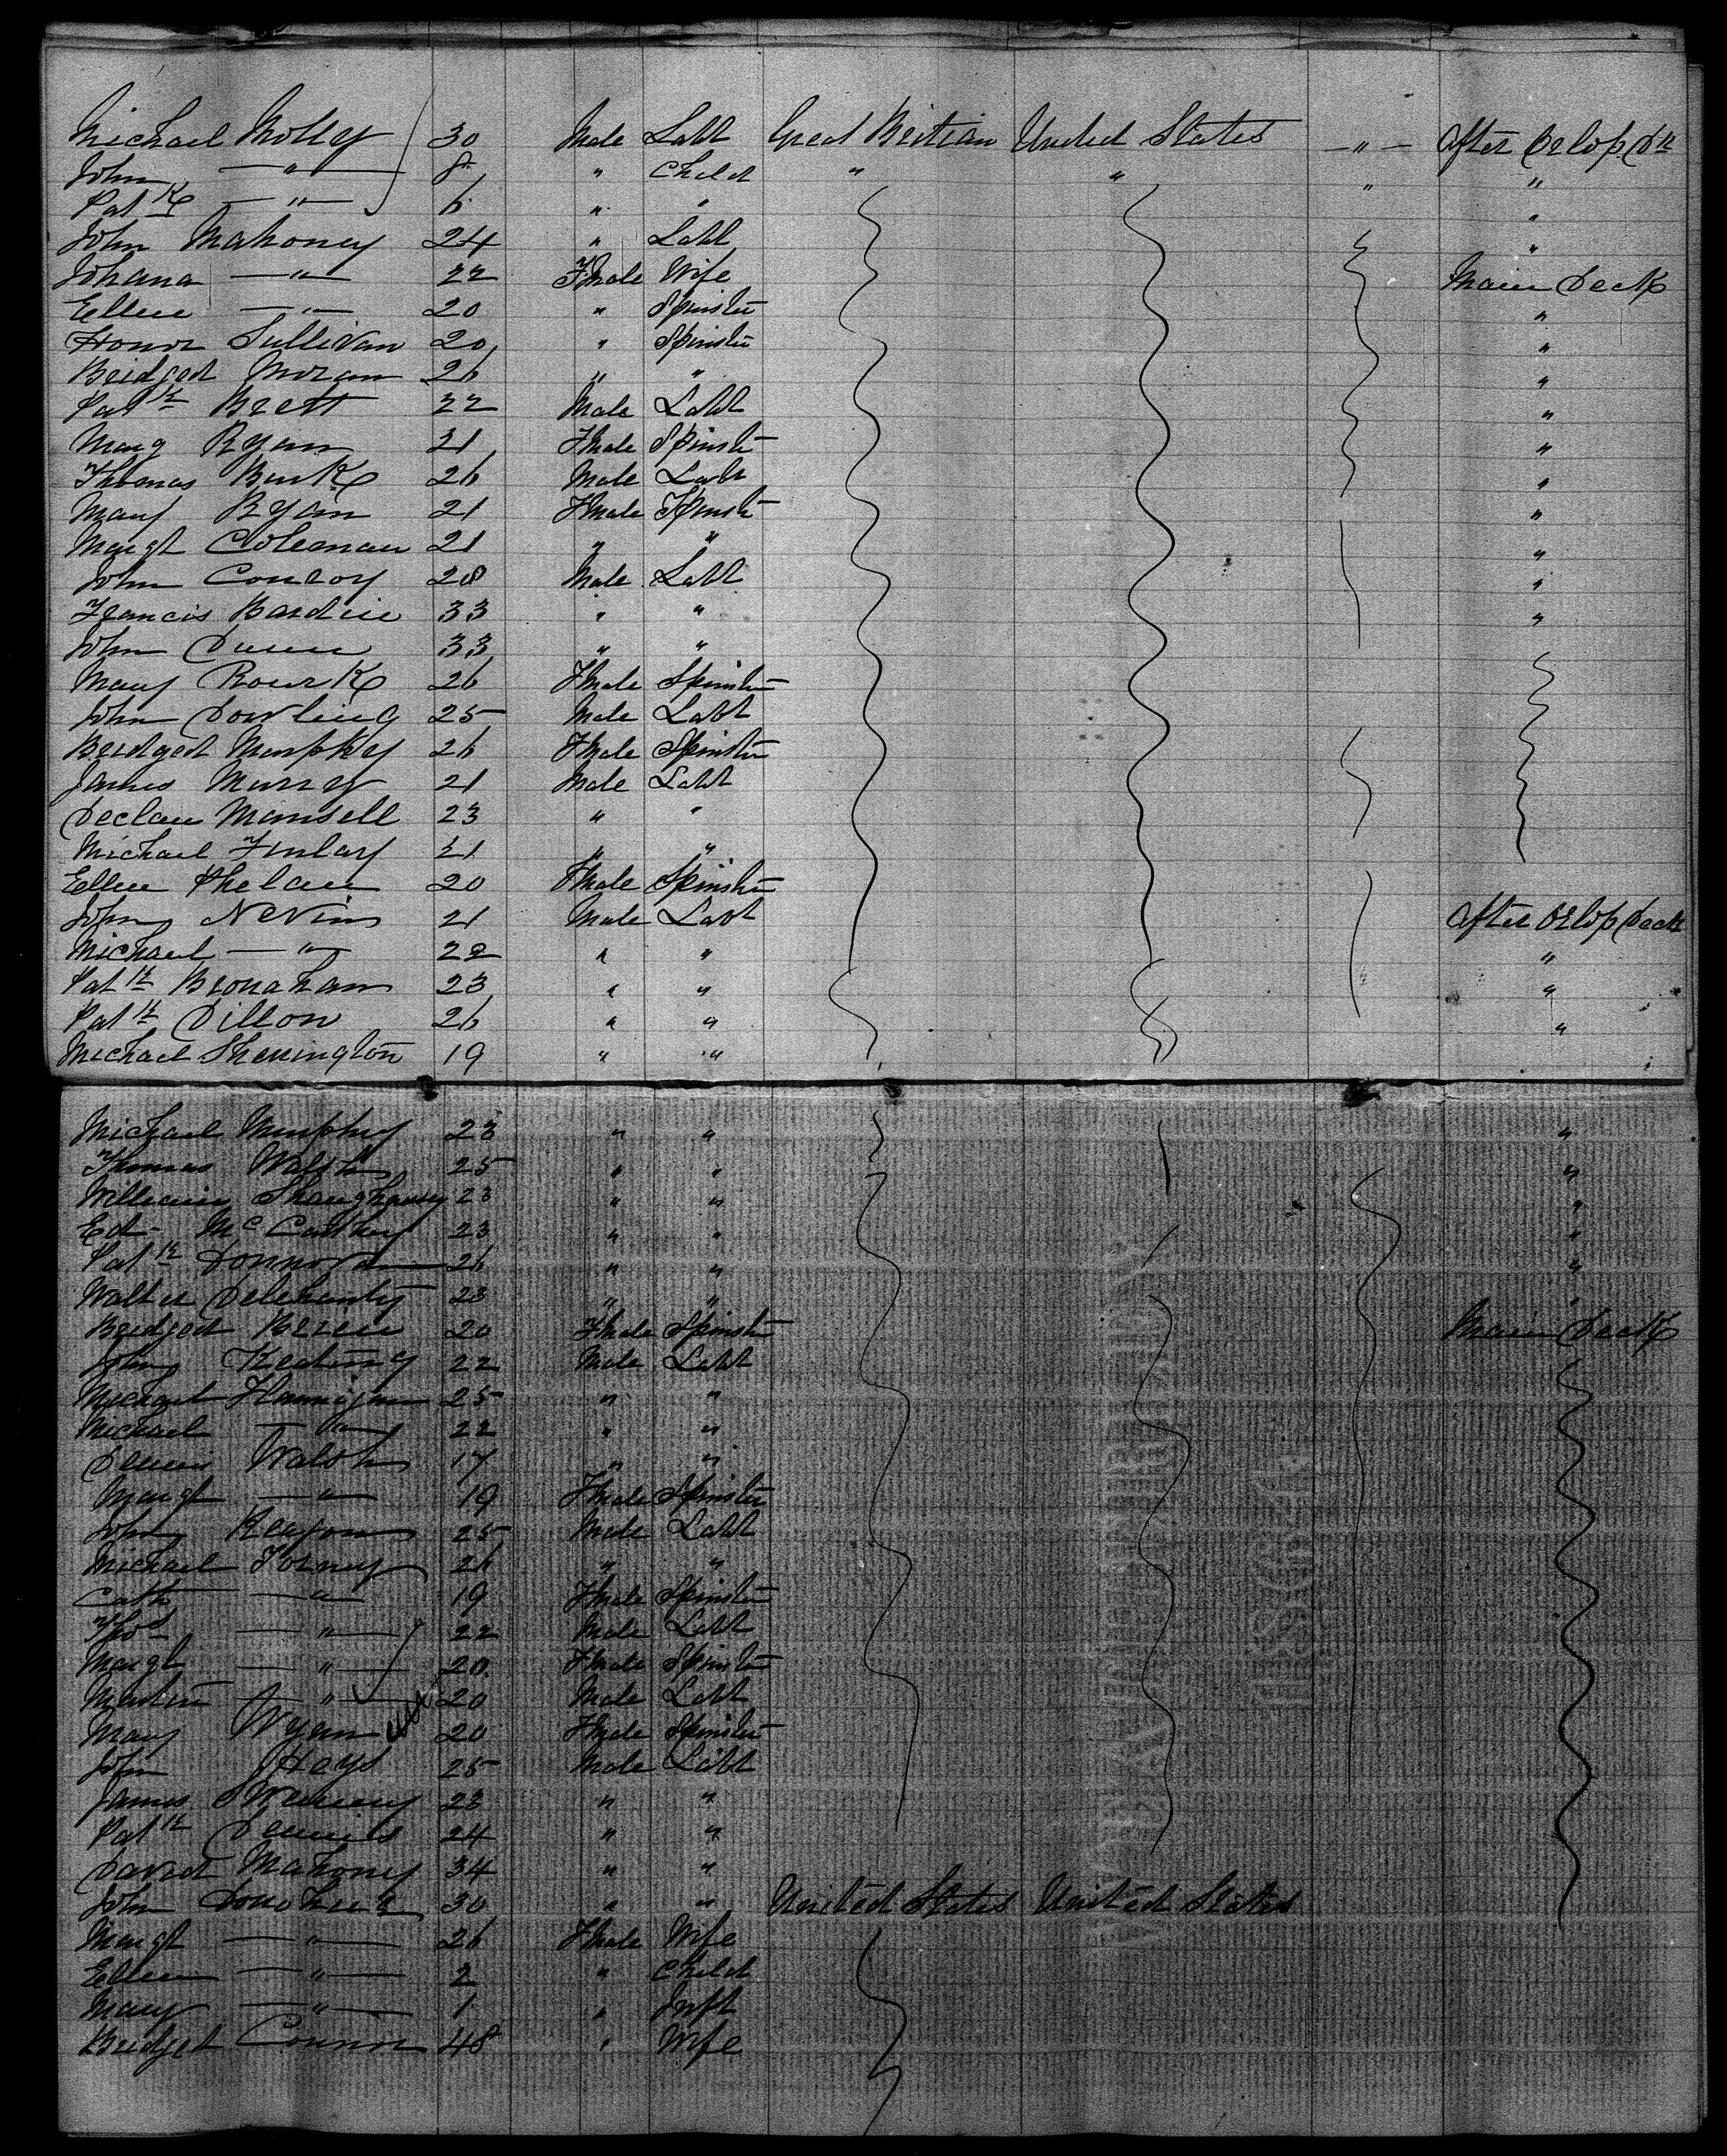 Michael Molly 30 Male Labr Great Beitian United States — " — After Orlop Dk
John — " — 8 " Child " " " "
Patk — " — 6 " " "
John Mahoney 24 " Labr "
Johana — " — 22 Fmale Wife Main Deck
Ellen — " — 20 " Spinster "
Honor Sullivan 20 " Spinster "
Bridget Moran 26 " " "
Patk Brett 22 Male Labr "
Marg Ryan 21 Fmale Spinstr "
Thomas Burk 26 Male Labr "
Mary Ryan 21 Fmale Spinstr "
Margt Coleman 21 " " "
John Conroy 28 Male Labr "
Francis 33 " " "
John Dunn 33 " "
Mary Rourk 26 Fmale Spinster
John Dowling 25 Male Labr
Bridget Murphy 26 Fmale Spinster
James Murrey 21 Male Labr
Declan Mansell 23 " "
Michael Finlay 21 " "
Ellen Phelan 20 Fmale Spinster
John Nevins 21 Male Labr After Orlop Deck
Michael — " 22 " " "
Patk Bronahan 23 " " "
Patk Dillon 26 " " "
Michael Sherrington 19 " "
Michael Murphy 23 " " "
Thomas Walsh 25 " " "
William Shaughnessy 23 " " "
Ed Mc Carthey 23 " " "
Patk Donnovan 26 " " "
Walter Delehanty 23 " " "
Bridget 20 Fmale Spinstr Main Deck
John Keating 22 Male Labr
Michael Hannigan 25 " "
Michael — " — 22 " "
Dennis Walsh 17 " "
Margt — " — 19 Fmale Spinster
John Reagan 25 Male Labr
Michael Torney 26 " "
Cath — " — 19 Fmale Spinster
Thos — " — 22 Male Labr
Margt — " — 20 Fmale Spinster
Martin — " — 20 Male Labr
Mary 20 Fmale Spinster
John Hays 25 Male Labr
James Sweeney 23 " "
Patk Dennis 24 " "
David Mahoney 34 " "
John Donohue 30 " " United States United States
Margt — " — 26 Fmale Wife
Ellen — " — 2 " Child
Mary — " — 1 " Inft
Bridget Connor 48 " Wife